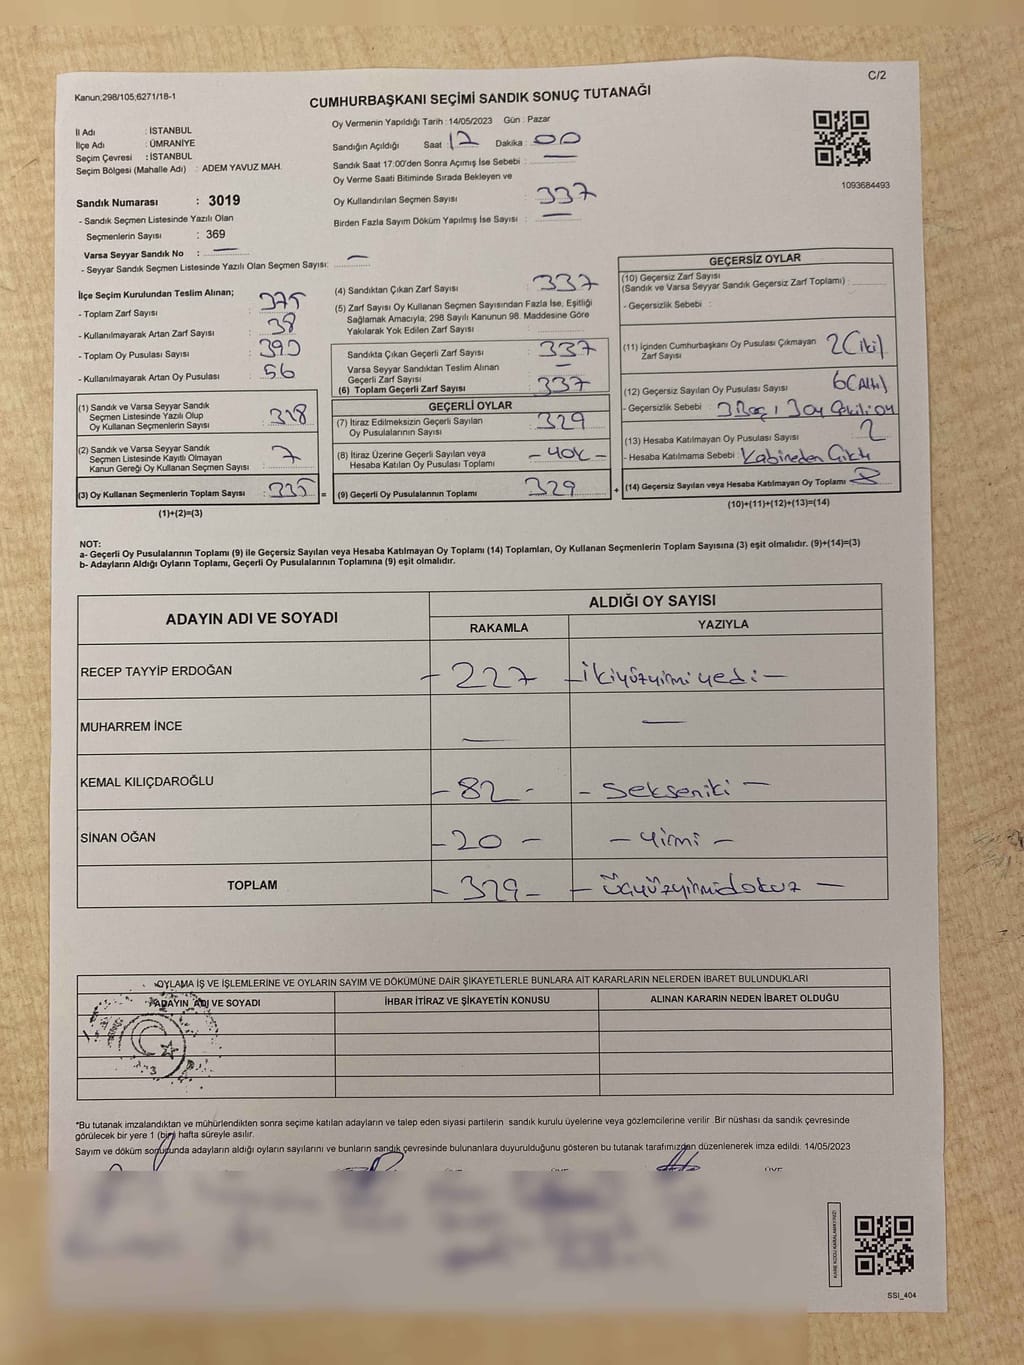 C/2
Kanun;298/105;6271/18-1
CUMHURBAŞKANI SEÇİMİ SANDIK SONUÇ TUTANAĞI
İl Adı : İSTANBUL
İlçe Adı : ÜMRANİYE
Seçim Çevresi : İSTANBUL
Seçim Bölgesi (Mahalle Adı) : ADEM YAVUZ MAH.
Sandık Numarası : 3019
- Sandık Seçmen Listesinde Yazılı Olan
Seçmenlerin Sayısı : 369
Varsa Seyyar Sandık No : —
- Seyyar Sandık Seçmen Listesinde Yazılı Olan Seçmen Sayısı: —
Oy Vermenin Yapıldığı Tarih : 14/05/2023 Gün : Pazar
Sandığın Açıldığı Saat : 17 Dakika : 00
Sandık Saat 17:00'den Sonra Açımış İse Sebebi : —
Oy Verme Saati Bitiminde Sırada Bekleyen ve
Oy Kullandırılan Seçmen Sayısı : 337
Birden Fazla Sayım Döküm Yapılmış İse Sayısı : —
1093684493
İlçe Seçim Kurulundan Teslim Alınan;
- Toplam Zarf Sayısı : 375
- Kullanılmayarak Artan Zarf Sayısı : 38
- Toplam Oy Pusulası Sayısı : 390
- Kullanılmayarak Artan Oy Pusulası : 56
(1) Sandık ve Varsa Seyyar Sandık
Seçmen Listesinde Yazılı Olup
Oy Kullanan Seçmenlerin Sayısı : 328
(2) Sandık ve Varsa Seyyar Sandık
Seçmen Listesinde Kayıtlı Olmayan
Kanun Gereği Oy Kullanan Seçmen Sayısı : 7
(3) Oy Kullanan Seçmenlerin Toplam Sayısı : 335 =
(1)+(2)=(3)
(4) Sandıktan Çıkan Zarf Sayısı : 337
(5) Zarf Sayısı Oy Kullanan Seçmen Sayısından Fazla İse, Eşitliği
Sağlamak Amacıyla; 298 Sayılı Kanunun 98. Maddesine Göre
Yakılarak Yok Edilen Zarf Sayısı :
Sandıkta Çıkan Geçerli Zarf Sayısı : 337
Varsa Seyyar Sandıktan Teslim Alınan
Geçerli Zarf Sayısı : —
(6) Toplam Geçerli Zarf Sayısı : 337
GEÇERLİ OYLAR
(7) İtiraz Edilmeksizin Geçerli Sayılan
Oy Pusulalarının Sayısı : 329
(8) İtiraz Üzerine Geçerli Sayılan veya
Hesaba Katılan Oy Pusulası Toplamı : - YOK -
(9) Geçerli Oy Pusulalarının Toplamı : 329 +
GEÇERSİZ OYLAR
(10) Geçersiz Zarf Sayısı
(Sandık ve Varsa Seyyar Sandık Geçersiz Zarf Toplamı) :
- Geçersizlik Sebebi :
(11) İçinden Cumhurbaşkanı Oy Pusulası Çıkmayan
Zarf Sayısı : 2 (iki)
(12) Geçersiz Sayılan Oy Pusulası Sayısı : 6 (Altı)
- Geçersizlik Sebebi : 3 Boş, 3 oy
(13) Hesaba Katılmayan Oy Pusulası Sayısı : 2
- Hesaba Katılmama Sebebi : Kabineden Çıktı
(14) Geçersiz Sayılan veya Hesaba Katılmayan Oy Toplamı : 8
(10)+(11)+(12)+(13)=(14)
NOT:
a- Geçerli Oy Pusulalarının Toplamı (9) ile Geçersiz Sayılan veya Hesaba Katılmayan Oy Toplamı (14) Toplamları, Oy Kullanan Seçmenlerin Toplam Sayısına (3) eşit olmalıdır. (9)+(14)=(3)
b- Adayların Aldığı Oyların Toplamı, Geçerli Oy Pusulalarının Toplamına (9) eşit olmalıdır.
ADAYIN ADI VE SOYADI
ALDIĞI OY SAYISI
RAKAMLA YAZIYLA
RECEP TAYYİP ERDOĞAN - 227 - ikiyüzyirmiyedi -
MUHARREM İNCE — —
KEMAL KILIÇDAROĞLU - 82 - - Sekseniki -
SİNAN OĞAN - 20 - - Yirmi -
TOPLAM - 329 - - üçyüzyirmidokuz -
OYLAMA İŞ VE İŞLEMLERİNE VE OYLARIN SAYIM VE DÖKÜMÜNE DAİR ŞİKAYETLERLE BUNLARA AİT KARARLARIN NELERDEN İBARET BULUNDUKLARI
ADAYIN ADI VE SOYADI İHBAR İTİRAZ VE ŞİKAYETİN KONUSU ALINAN KARARIN NEDEN İBARET OLDUĞU
*Bu tutanak imzalandıktan ve mühürlendikten sonra seçime katılan adayların ve talep eden siyasi partilerin sandık kurulu üyelerine veya gözlemcilerine verilir. Bir nüshası da sandık çevresinde
görülecek bir yere 1 (bir) hafta süreyle asılır.
Sayım ve döküm sonucunda adayların aldığı oyların sayılarını ve bunların sandık çevresinde bulunanlara duyurulduğunu gösteren bu tutanak tarafımızdan düzenlenerek imza edildi. 14/05/2023
KARE KODU KARALAMAYINIZ!
SSI_404